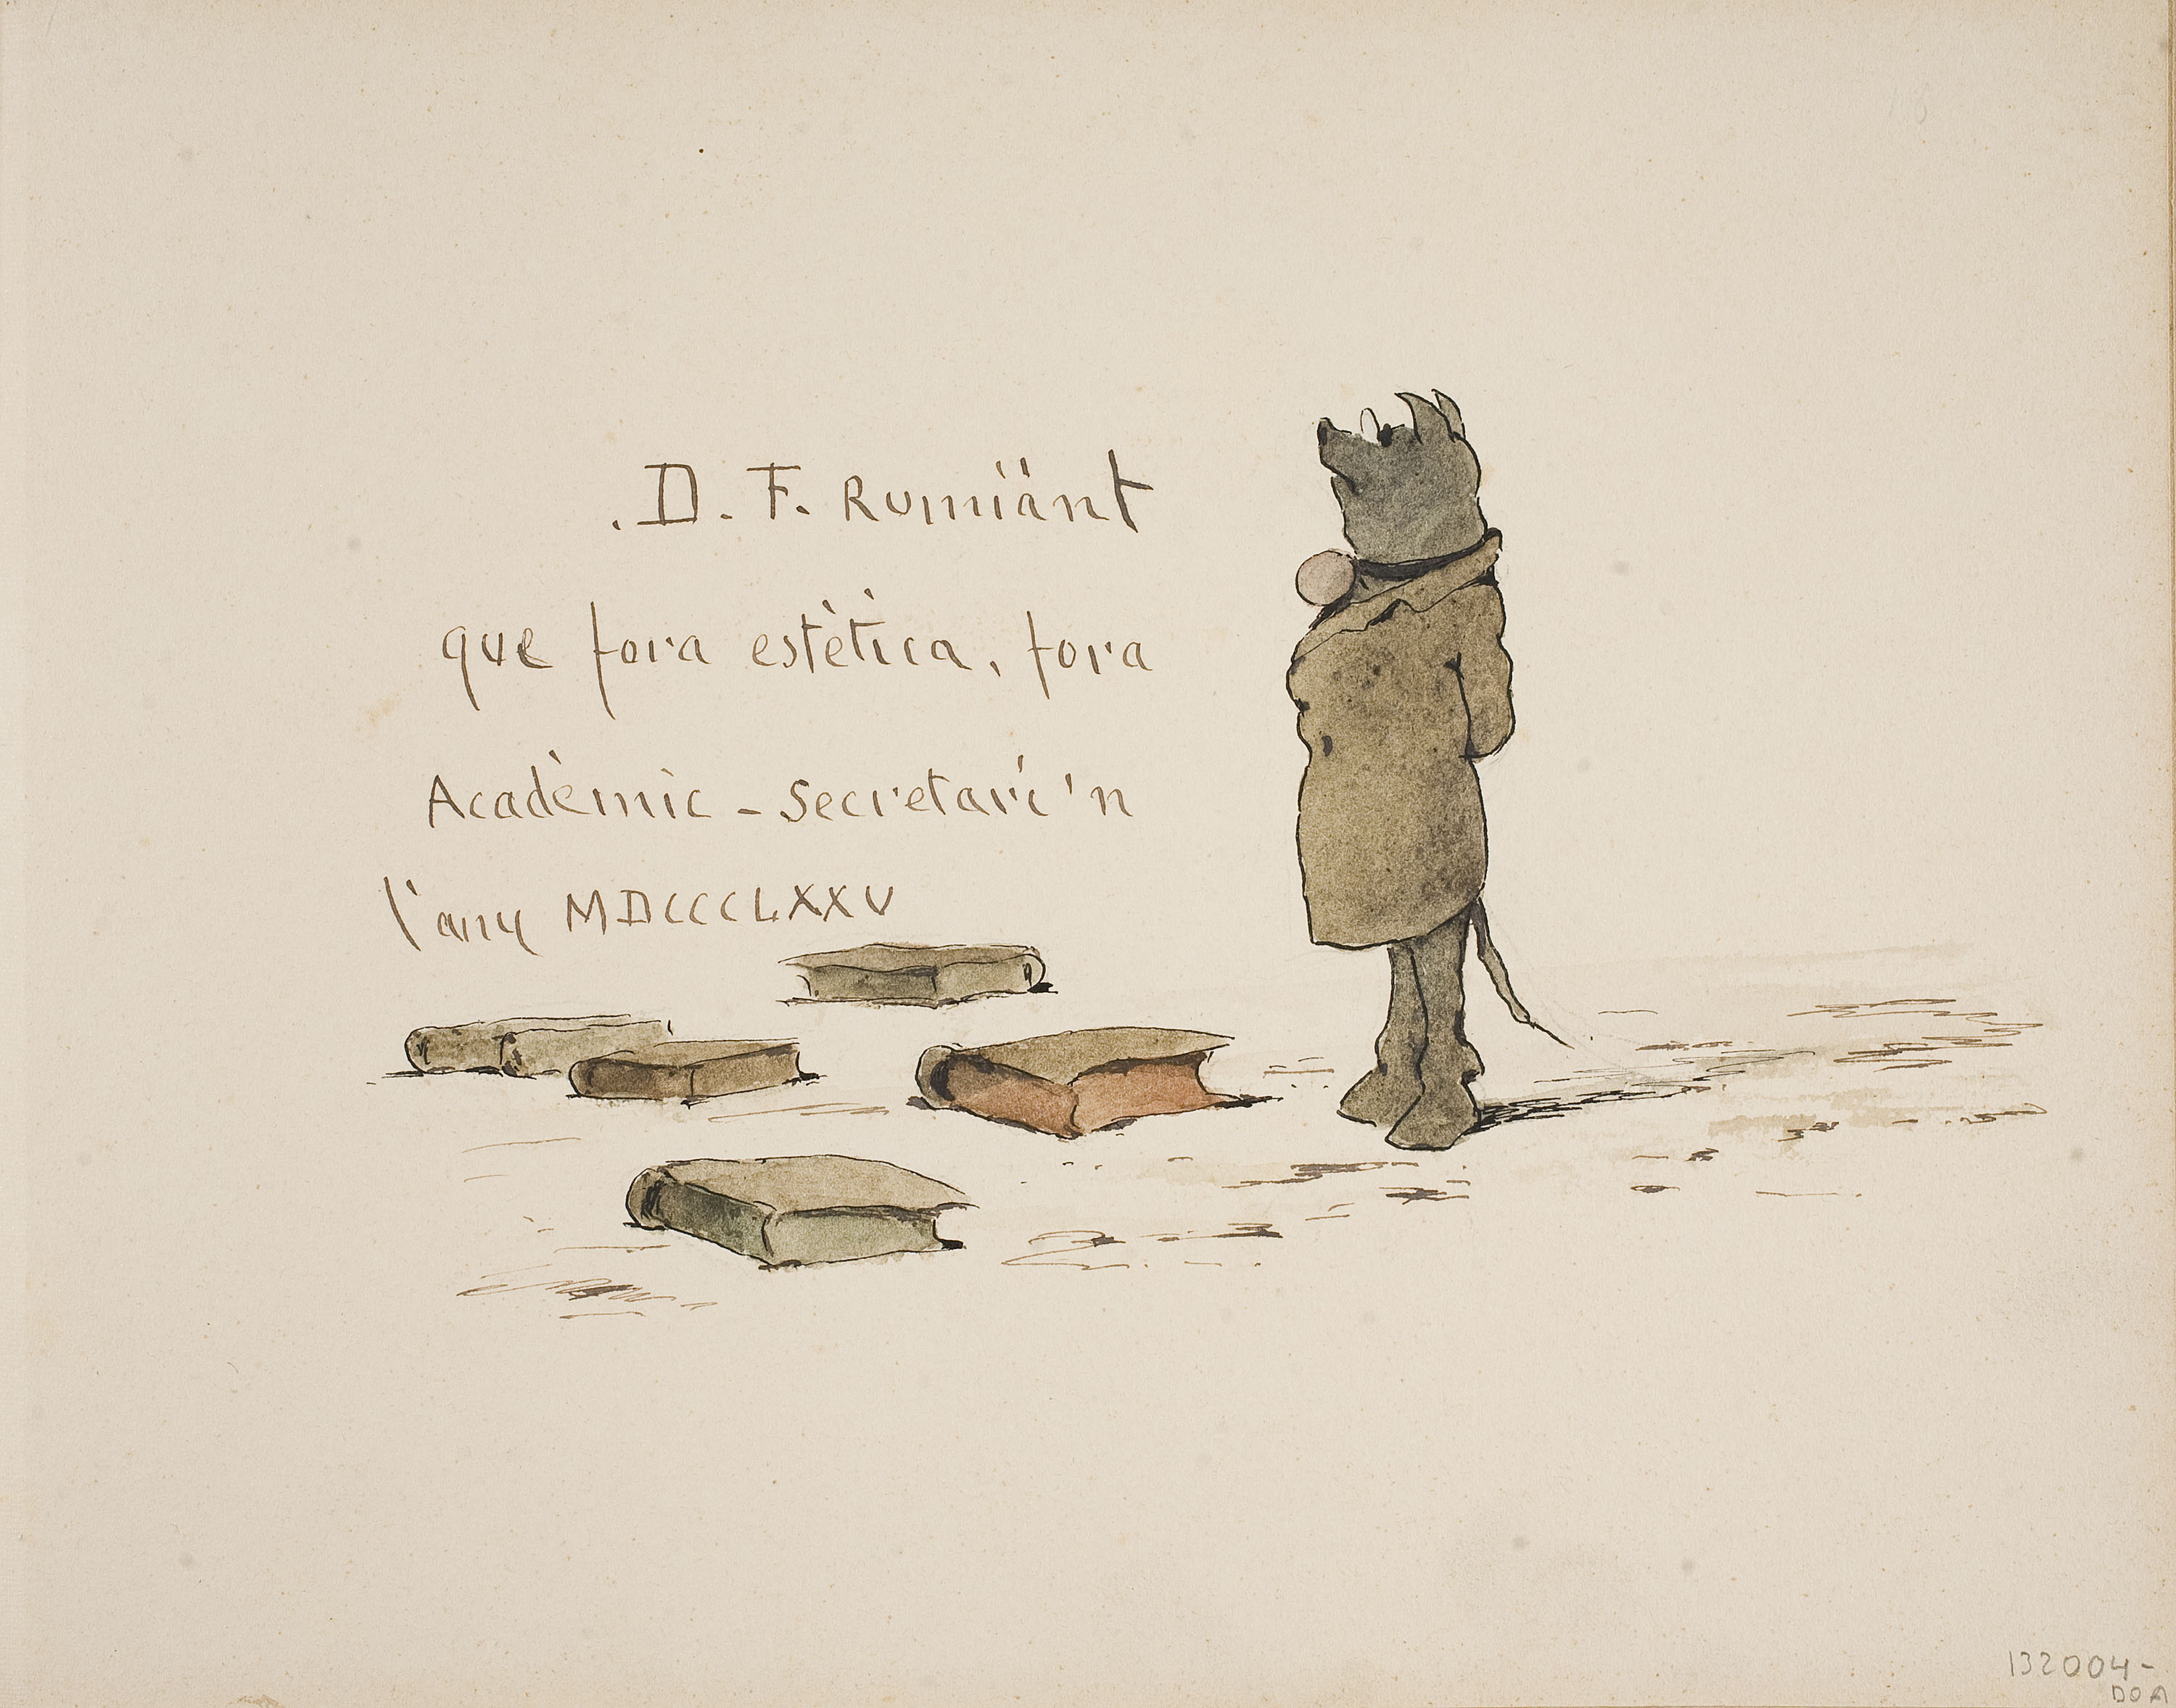 .D. F. Rumiänt
que fora estètica, fora
Acadèmic - secretari 'n
l'any MDCCCLXXV
132004-
DOA